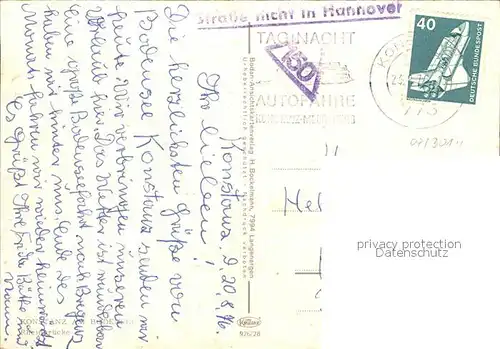 Straße nicht in Hannover
40
DEUTSCHE BUNDESPOST
TAG NACHT
AUTOFÄHRE
KONSTANZ-MEERSBURG
50
775
Konstanz, d. 20.8.76.
Ihr lieben!
Die herzlichsten Grüße vom
Bodensee Konstanz senden wir
heute. Wir verbringen unseren
Urlaub hier. Das Wetter ist wunderbar
Eine große Bodenseefahrt nach Bregenz
haben wir hinter uns. Ende des
Monats fahren wir wieder heimwärts
Es grüßt Ihre Frau
Mann.
KONSTANZ AM BODENSEE
Rheinbrücke
Bodan-Ansichtskartenverlag H. Bockelmann, 7994 Langenargen
Urheberrechtlich geschützt Nachdruck verboten
Krüger
926/28
Hel
privacy protection
Datenschutz